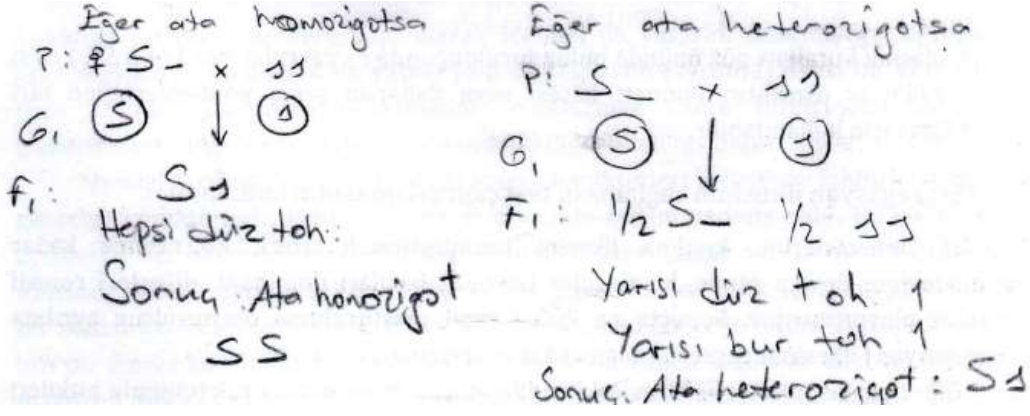 Eğer ata homozigotsa
P: ♀ S_ x ss
G₁ S s
F₁ Ss
Hepsi düz toh.
Sonuç: Ata homozigot
SS
Eğer ata heterozigotsa
P: S_ x ss
G₁ S s
F₁: 1/2 S_ 1/2 ss
Yarısı düz toh 1
Yarısı bur toh 1
Sonuç: Ata heterozigot: Ss